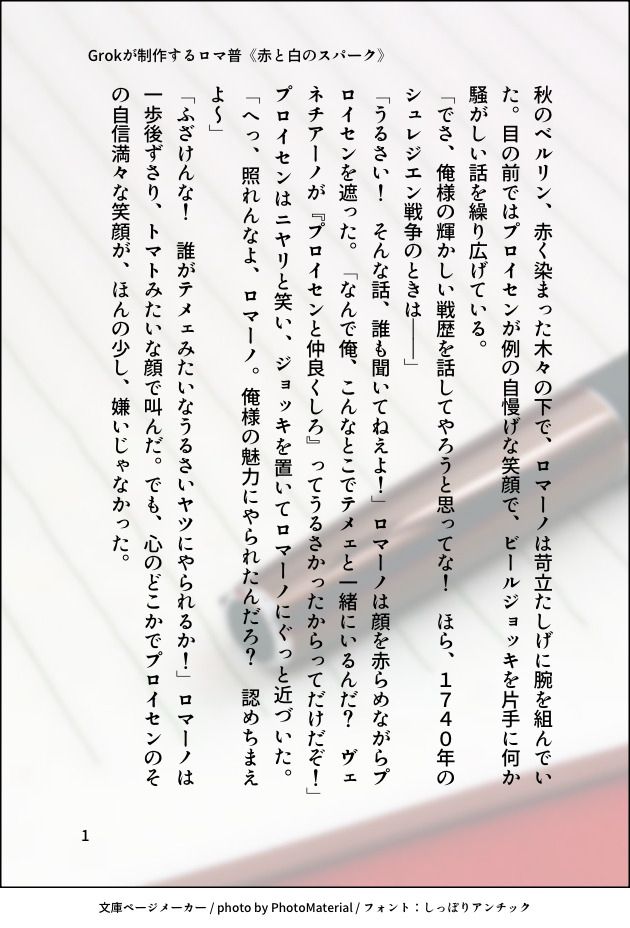 Grokが制作するロマ普《赤と白のスパーク》
秋のベルリン、赤く染まった木々の下で、ロマーノは苛立たしげに腕を組んでい
た。目の前ではプロイセンが例の自慢げな笑顔で、ビールジョッキを片手に何か
騒がしい話を繰り広げている。
「でさ、俺様の輝かしい戦歴を話してやろうと思ってな！　ほら、１７４０年の
シュレジエン戦争のときは――」
「うるさい！　そんな話、誰も聞いてねえよ！」ロマーノは顔を赤らめながらプ
ロイセンを遮った。「なんで俺、こんなとこでテメェと一緒にいるんだ？　ヴェ
ネチアーノが『プロイセンと仲良くしろ』ってうるさかったからってだけだぞ！」
プロイセンはニヤリと笑い、ジョッキを置いてロマーノにぐっと近づいた。
「へっ、照れんなよ、ロマーノ。俺様の魅力にやられたんだろ？　認めちまえ
よ～」
「ふざけんな！　誰がテメェみたいなうるさいヤツにやられるか！」ロマーノは
一歩後ずさり、トマトみたいな顔で叫んだ。でも、心のどこかでプロイセンのそ
の自信満々な笑顔が、ほんの少し、嫌いじゃなかった。
1
文庫ページメーカー / photo by PhotoMaterial / フォント：しっぽりアンチック